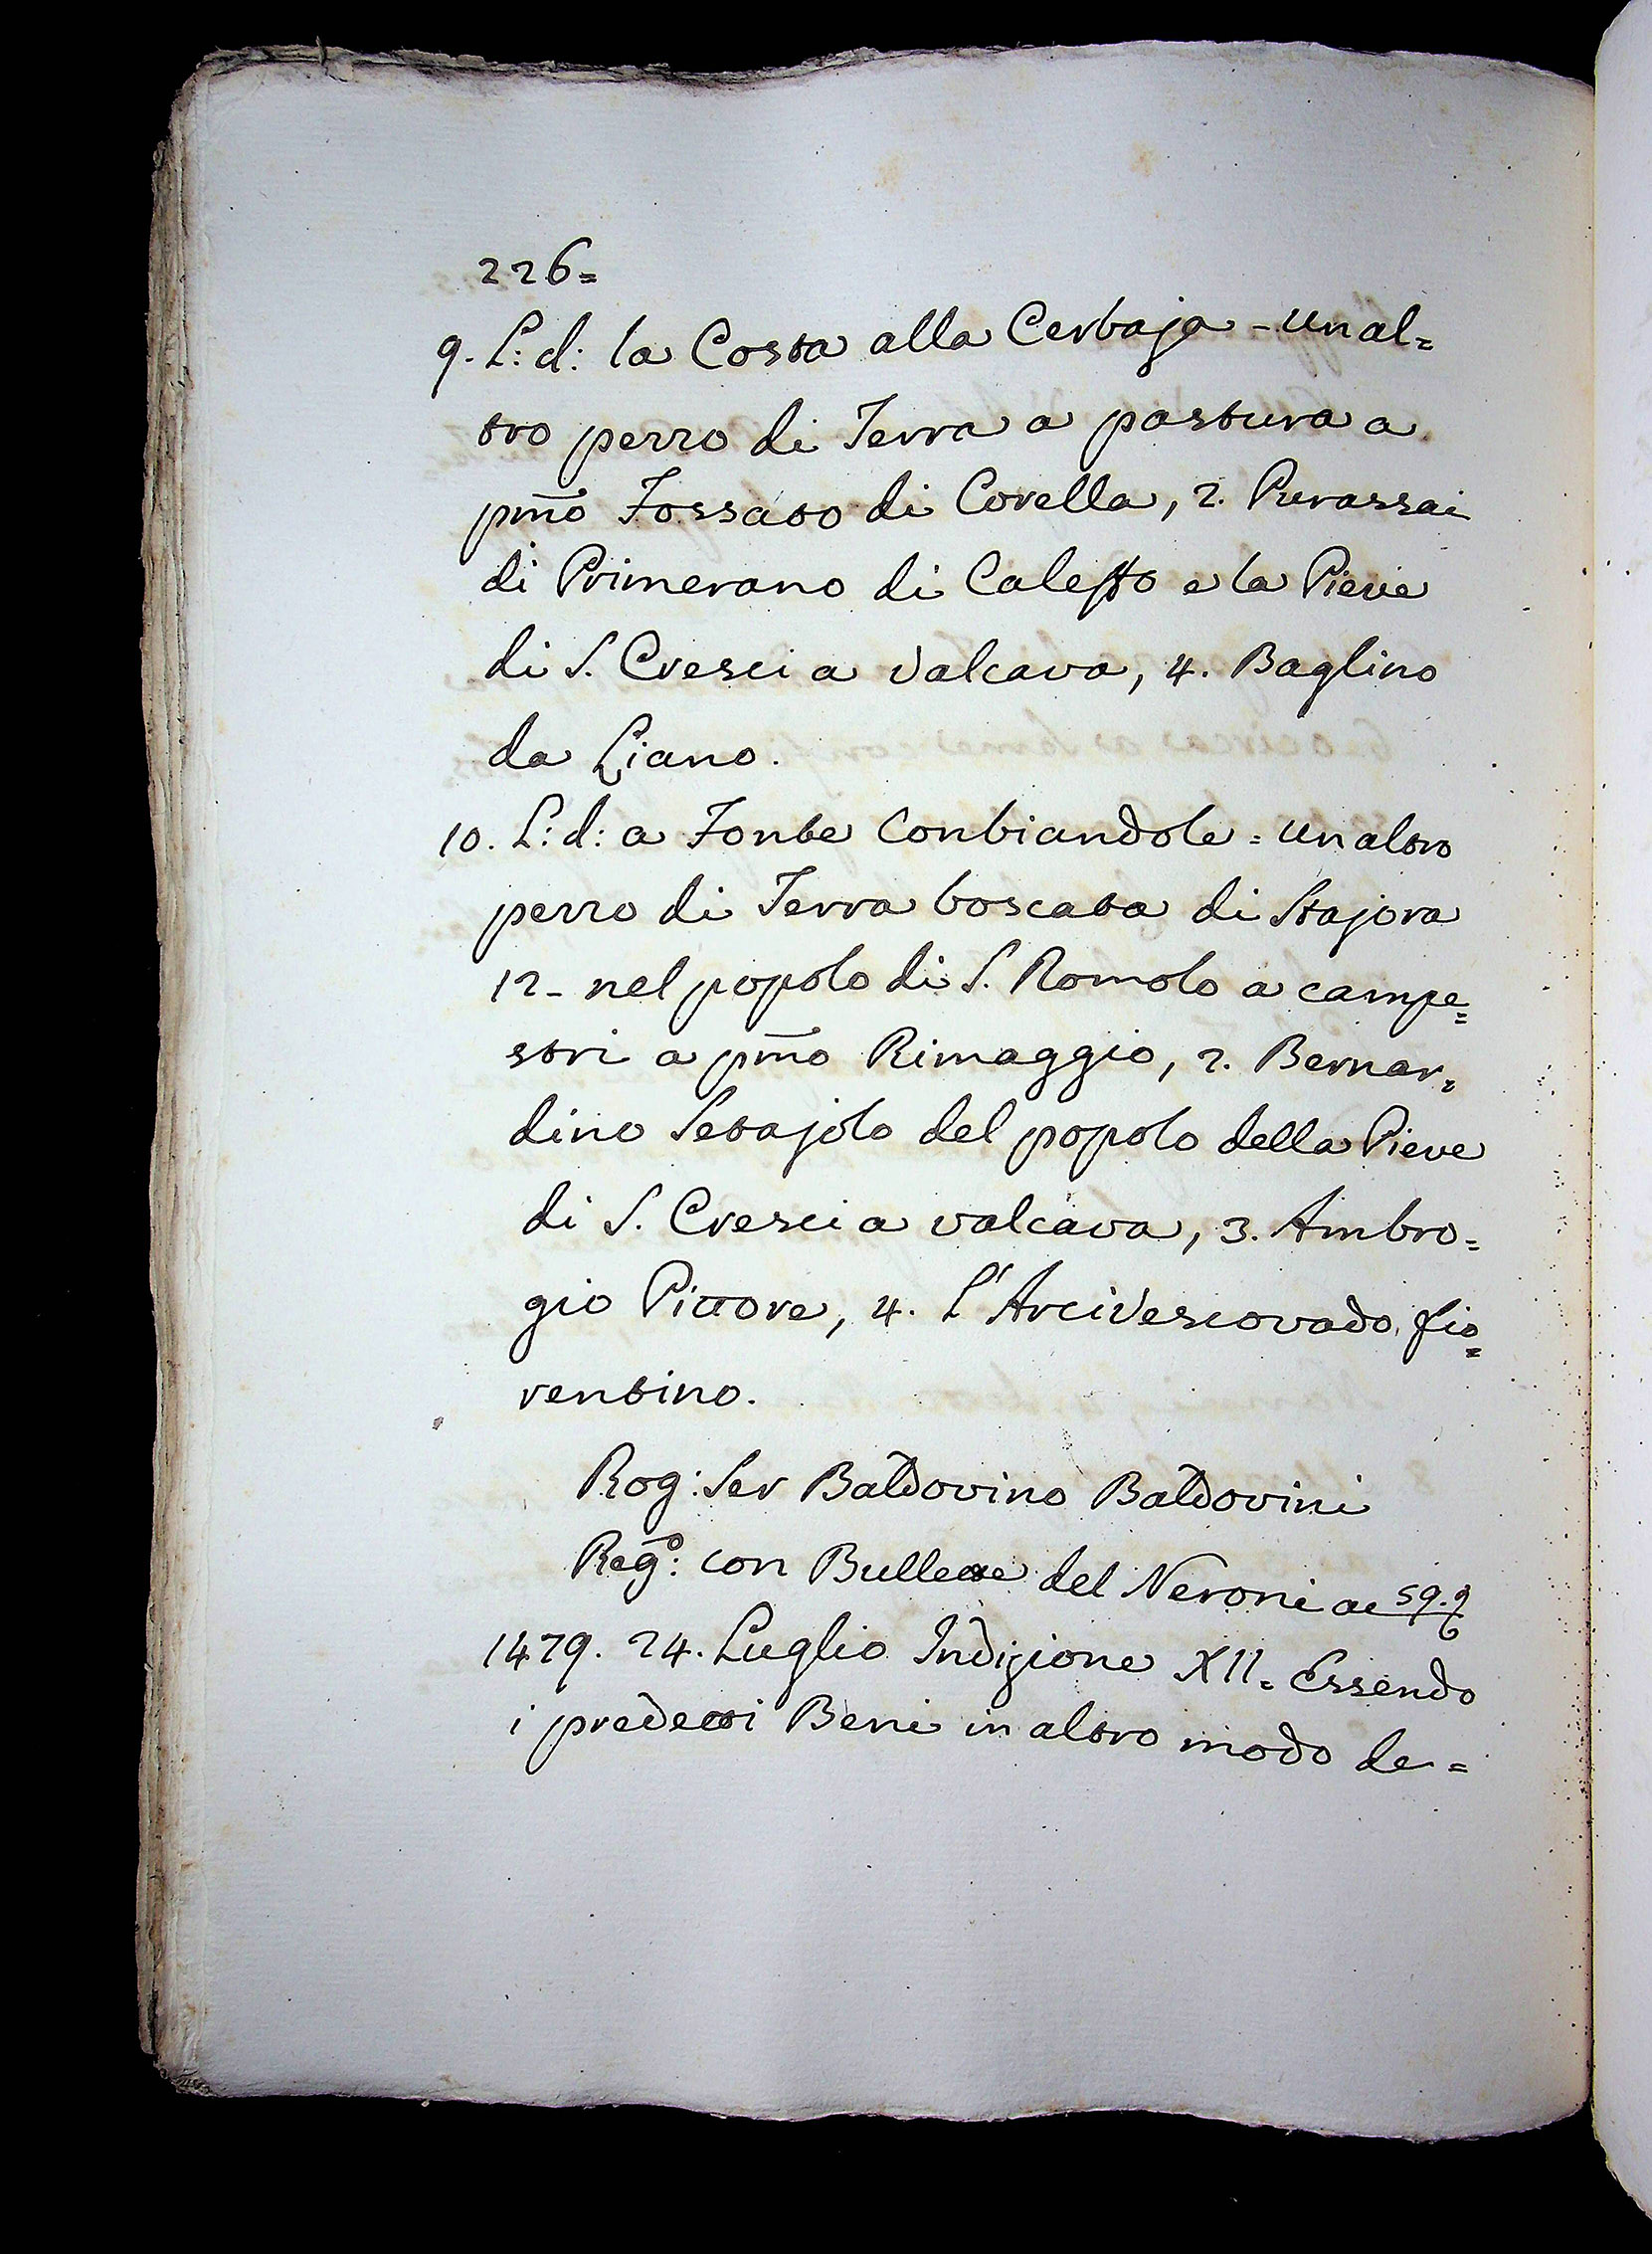 226=
9. L: d: la Costa alla Cerbaja - un al=
tro pezzo di Terra a pastura a
pm̃o Fossato di Corella, 2. Purassai
di Primerano di Calesto e la Pieve
di S. Cresci a Valcava, 4. Baglino
da Liano.
10. L: d: a Fonte Contiandole = un altro
pezzo di Terra boscata di Stajora
12 - nel popolo di S. Romolo a campe=
stri a pm̃o Rimaggio, 2. Bernar=
dino Setajolo del popolo della Pieve
di S. Cresci a valcava, 3. Ambro=
gio Pittore, 4. L'Arcivescovado fio=
rentino.
Rog: Ser Baldovino Baldovini
Reg.º: con Bullette del Neroni ac 59. 9
1479. 24. Luglio Indizione XII = Essendo
i predetti Beni in altro modo de=